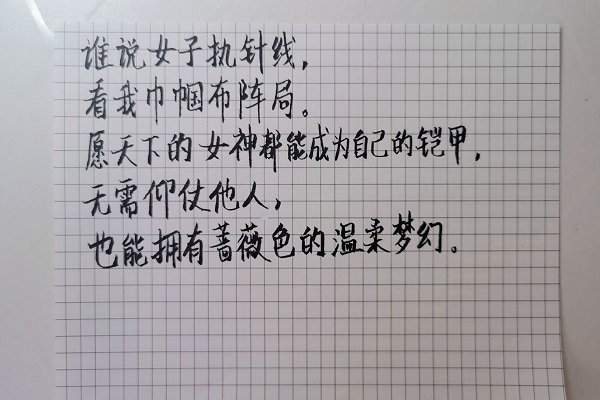 谁说女子执针线，
看我巾帼布阵局。
愿天下的女神都能成为自己的铠甲，
无需仰仗他人，
也能拥有蔷薇色的温柔梦幻。